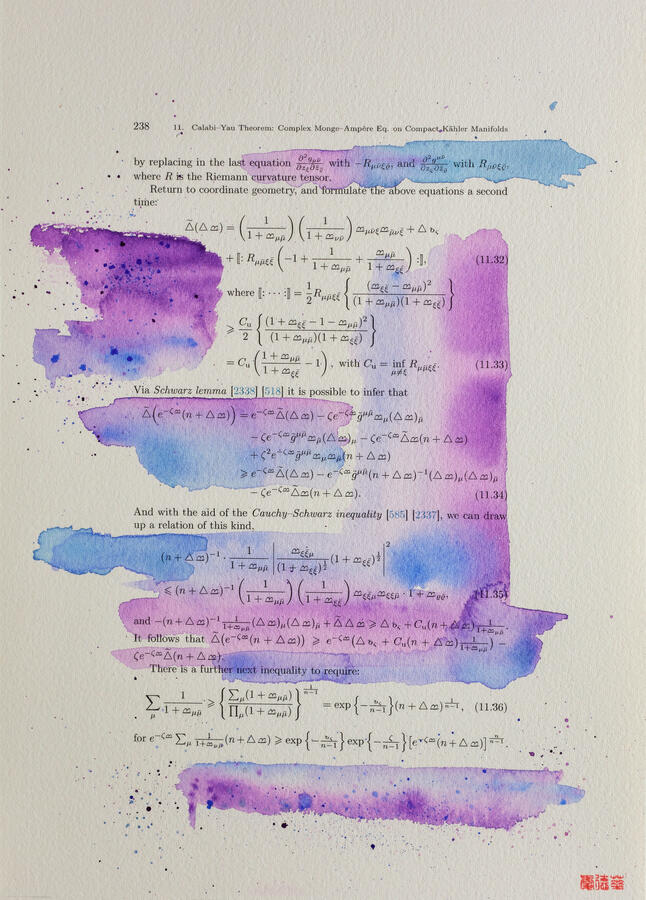 238 11. Calabi–Yau Theorem: Complex Monge–Ampère Eq. on Compact Kähler Manifolds
by replacing in the last equation ∂²g_{μν̄}/∂z_ξ∂z̄_ρ̄ with −R_{μν̄ξρ̄}, and ∂²g^{μν̄}/∂z_ξ∂z̄_ρ̄ with R_{μ̄νξρ̄},
where R is the Riemann curvature tensor.
Return to coordinate geometry, and formulate the above equations a second
time:
Δ̃(△ϖ) = (1/(1+ϖ_{μμ̄})) (1/(1+ϖ_{νν̄})) ϖ_{μν̄ξ}ϖ_{μ̄νξ̄} + △ʋ_ς
+ ⟦: R_{μμ̄ξξ̄} (−1 + 1/(1+ϖ_{μμ̄}) + ϖ_{μμ̄}/(1+ϖ_{ξξ̄})) :⟧, (11.32)
where ⟦: ··· :⟧ = ½R_{μμ̄ξξ̄} { (ϖ_{ξξ̄} − ϖ_{μμ̄})² / (1+ϖ_{μμ̄})(1+ϖ_{ξξ̄}) }
⩾ C_u/2 { (1+ϖ_{ξξ̄} − 1 − ϖ_{μμ̄})² / (1+ϖ_{μμ̄})(1+ϖ_{ξξ̄}) }
= C_u ( (1+ϖ_{μμ̄})/(1+ϖ_{ξξ̄}) − 1 ), with C_u = inf_{μ≠ξ} R_{μμ̄ξξ̄}. (11.33)
Via Schwarz lemma [2338] [518] it is possible to infer that
Δ̃(e^{−ζϖ}(n + △ϖ)) = e^{−ζϖ}Δ̃(△ϖ) − ζe^{−ζϖ}g̃^{μμ̄}ϖ_μ(△ϖ)_μ̄
− ζe^{−ζϖ}g̃^{μμ̄}ϖ_μ̄(△ϖ)_μ − ζe^{−ζϖ}Δ̃ϖ(n + △ϖ)
+ ζ²e^{−ζϖ}g̃^{μμ̄}ϖ_μϖ_μ̄(n + △ϖ)
⩾ e^{−ζϖ}Δ̃(△ϖ) − e^{−ζϖ}g̃^{μμ̄}(n + △ϖ)^{−1}(△ϖ)_μ(△ϖ)_μ̄
− ζe^{−ζϖ}Δ̃ϖ(n + △ϖ). (11.34)
And with the aid of the Cauchy–Schwarz inequality [585] [2337], we can draw
up a relation of this kind,
(n + △ϖ)^{−1} · 1/(1+ϖ_{μμ̄}) | ϖ_{ξξ̄μ}/(1+ϖ_{ξξ̄})^{½} (1 + ϖ_{ξξ̄})^{½} |²
⩽ (n + △ϖ)^{−1} (1/(1+ϖ_{μμ̄})) (1/(1+ϖ_{ξξ̄})) ϖ_{ξξ̄μ}ϖ_{ξξ̄μ̄} · 1+ϖ_{ϱϱ̄}, (11.35)
and −(n + △ϖ)^{−1} 1/(1+ϖ_{μμ̄}) (△ϖ)_μ(△ϖ)_μ̄ + Δ̃△ϖ ⩾ △ʋ_ς + C_u(n + △ϖ) 1/(1+ϖ_{μμ̄}).
It follows that Δ̃(e^{−ζϖ}(n + △ϖ)) ⩾ e^{−ζϖ}(△ʋ_ς + C_u(n + △ϖ) 1/(1+ϖ_{μμ̄})) −
ζe^{−ζϖ}Δ̃(n + △ϖ).
There is a further next inequality to require:
∑_μ 1/(1+ϖ_{μμ̄}) ⩾ { ∑_μ(1+ϖ_{μμ̄}) / ∏_μ(1+ϖ_{μμ̄}) }^{1/(n−1)} = exp{−ʋ_ς/(n−1)}(n + △ϖ)^{1/(n−1)}, (11.36)
for e^{−ζϖ} ∑_μ 1/(1+ϖ_{μμ̄}) (n + △ϖ) ⩾ exp{−ʋ_ς/(n−1)} exp{−ζ/(n−1)} [e^{−ζϖ}(n + △ϖ)]^{n/(n−1)}.